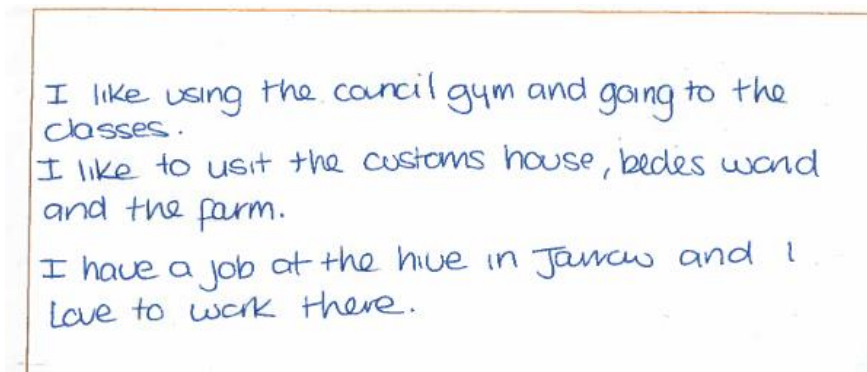 I like using the council gym and going to the
classes.
I like to visit the customs house, bedes world
and the farm.
I have a job at the hive in Jarrow and I
love to work there.